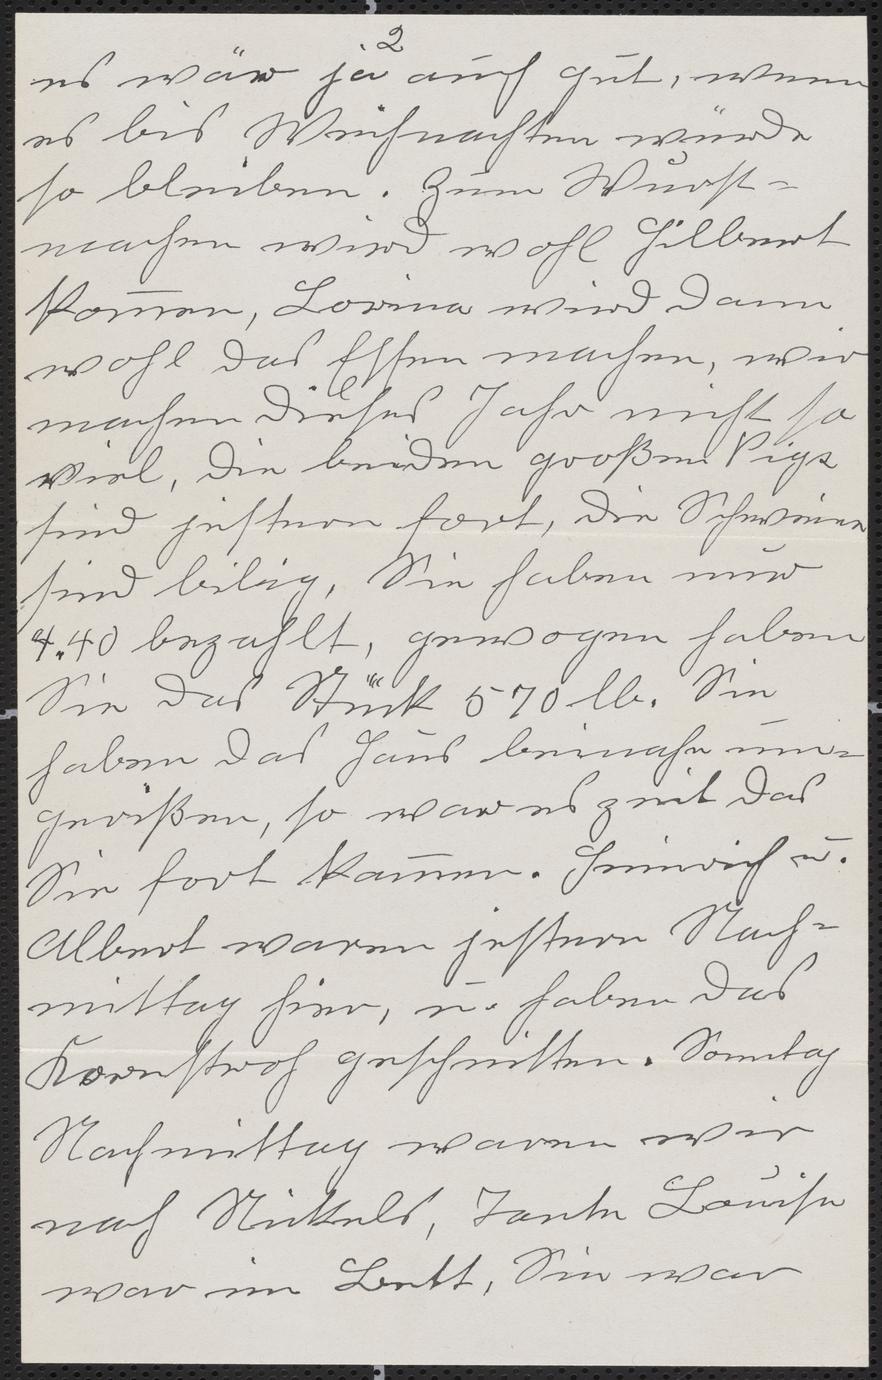 2
es wär ja auch gut, wenn
es bis Weihnachten würde
so bleiben. Zum Wurst-
machen wird wohl Hilbert
kom̅en, Lorina wird dann
wohl das Essen machen, wir
machen dieses Jahr nicht so
viel, die beiden großen Pigs
sind jestern fort, die Schweine
sind bilig, Sie haben nur
4.40 bezahlt, gewogen haben
Sie das Stück 570 lb. Sie
haben das Haus beinahe um-
gerißen, so war es zeit das
Sie fort kam̅en. Heinrich u.
Albert waren jestern Nach-
mittag hier, u. haben das
Kornstroh geschnitten. Sonntag
Nachmittag waren wir
nach Nickels, Tante Louise
war im Bett, Sie war